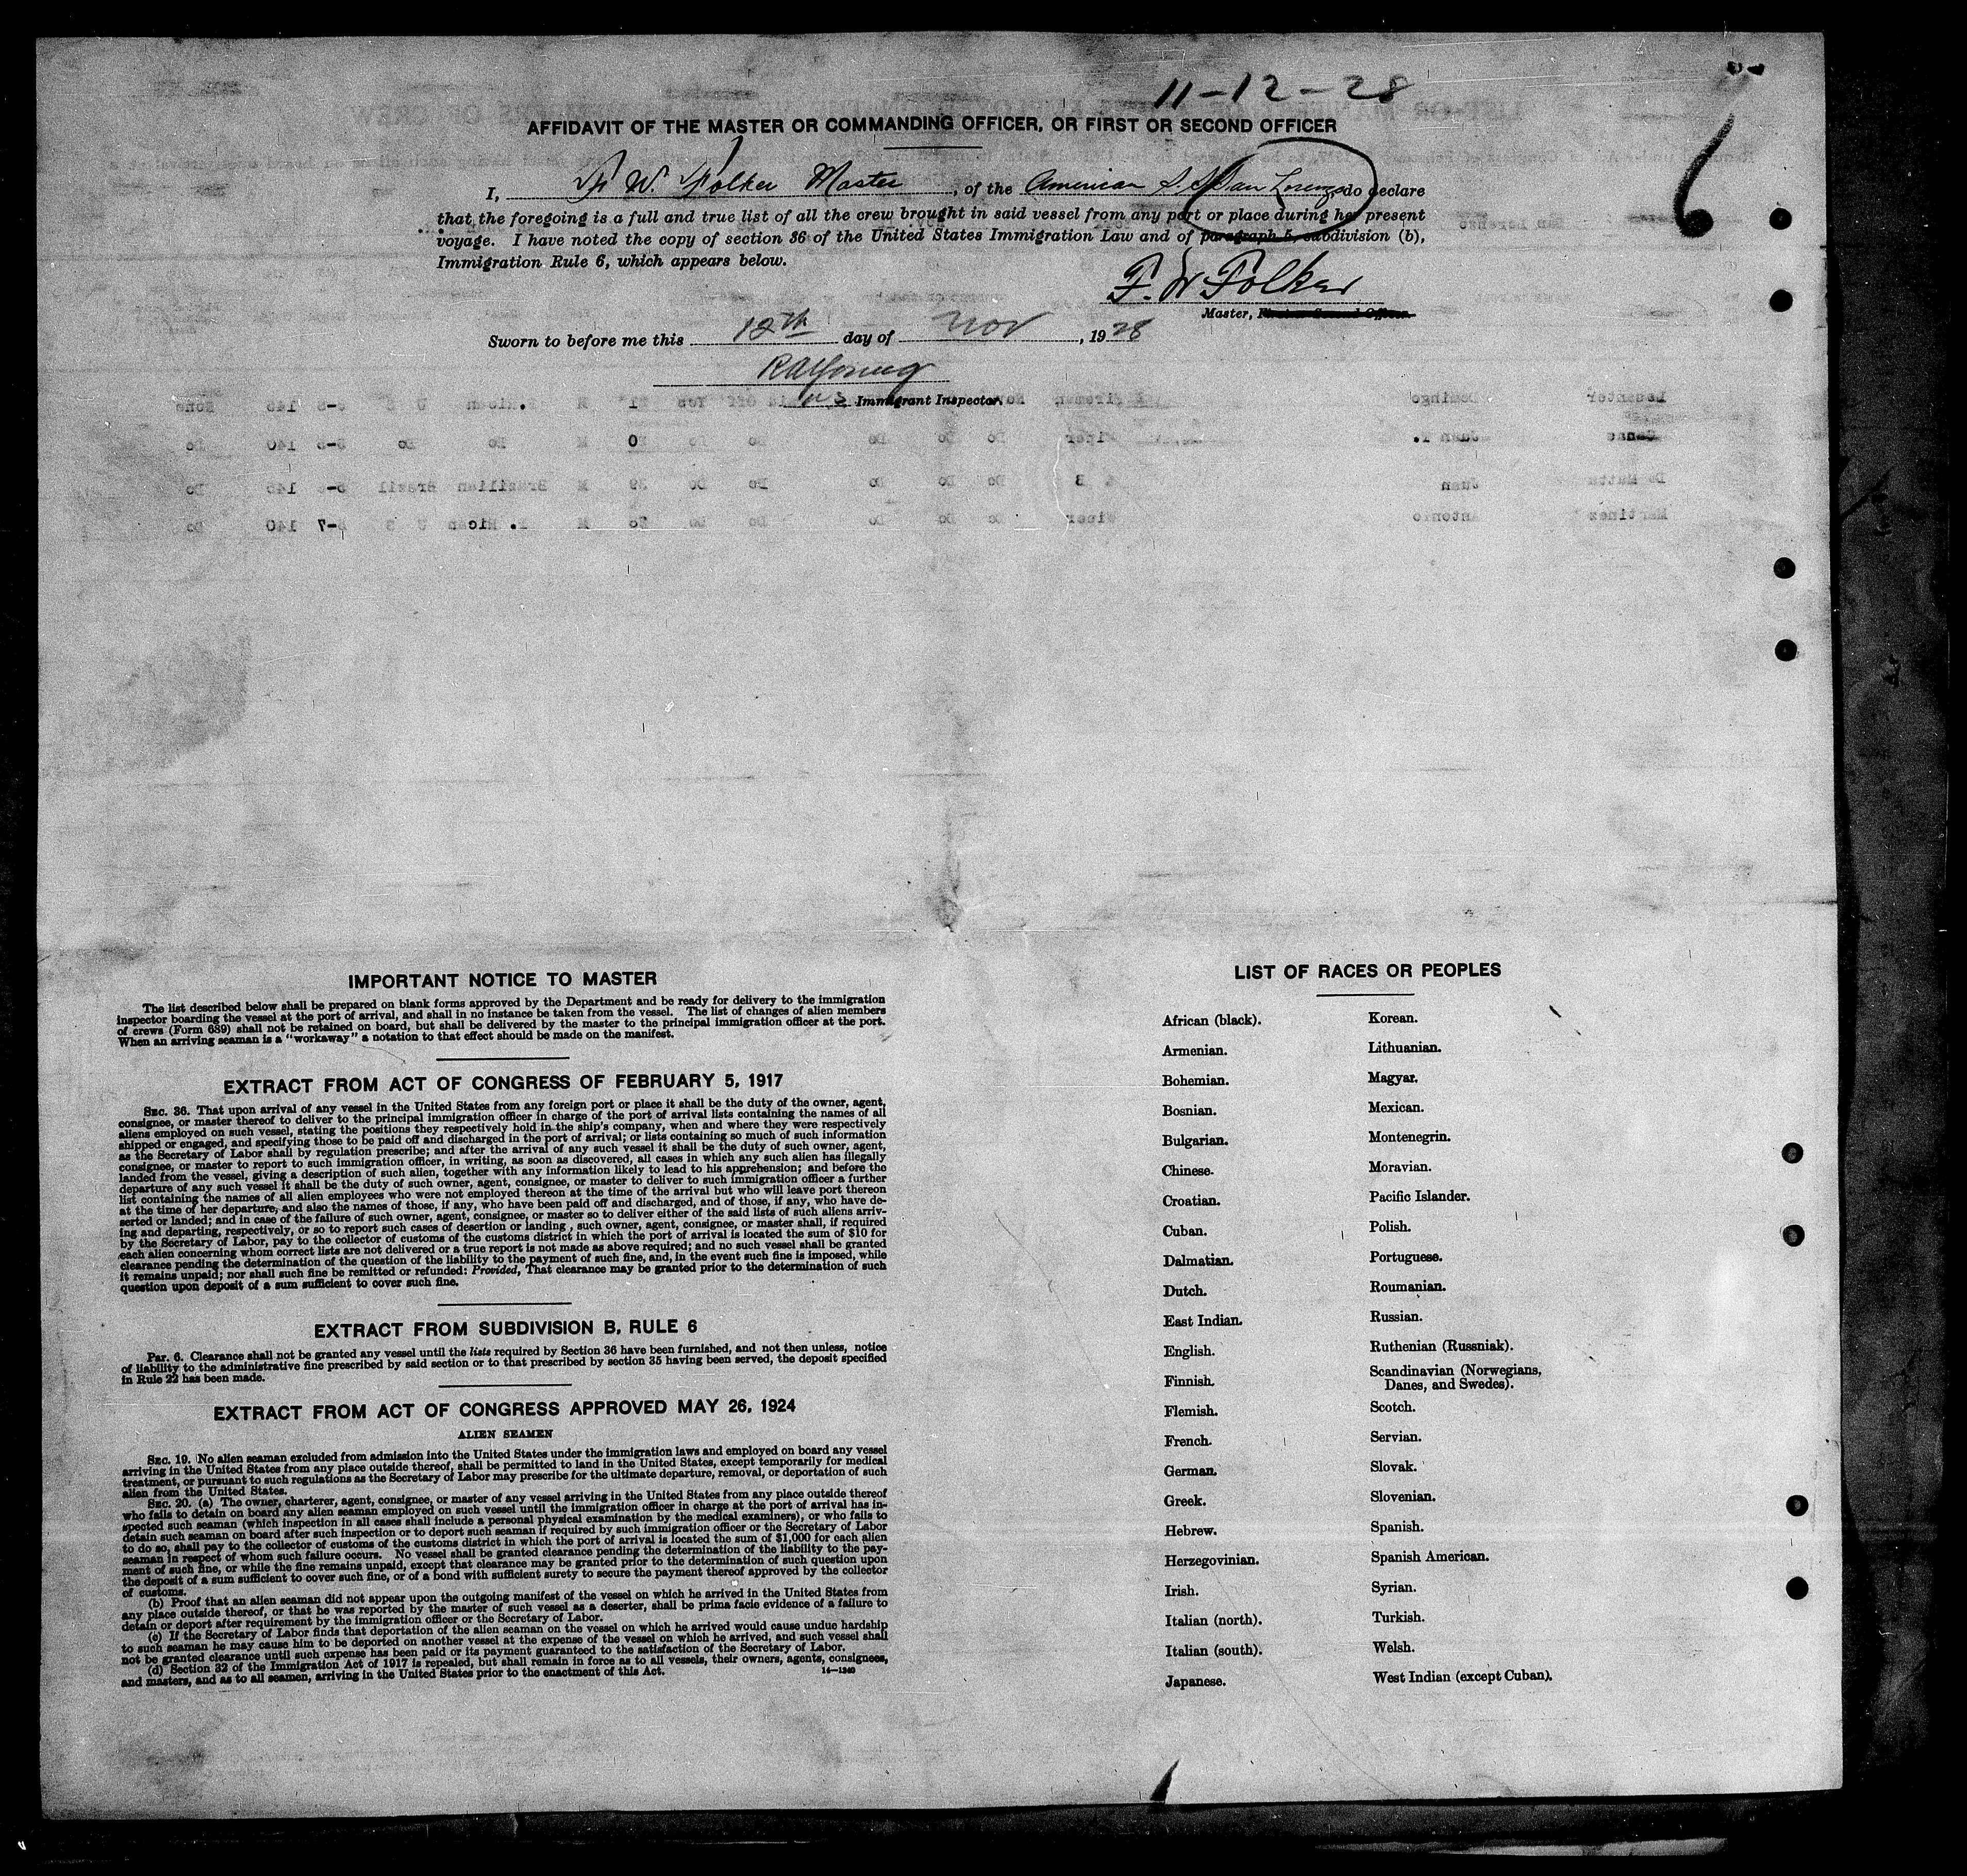 11-12-28
6
AFFIDAVIT OF THE MASTER OR COMMANDING OFFICER, OR FIRST OR SECOND OFFICER
I, F. W. Folker Master, of the American S.S. San Lorenzo do declare
that the foregoing is a full and true list of all the crew brought in said vessel from any port or place during her present
voyage. I have noted the copy of section 36 of the United States Immigration Law and of paragraph 5, subdivision (b),
Immigration Rule 6, which appears below.
F. W Folker
Master, First or Second Officer.
Sworn to before me this 12th day of Nov, 1928
RA Young
US Immigrant Inspector.
IMPORTANT NOTICE TO MASTER
The list described below shall be prepared on blank forms approved by the Department and be ready for delivery to the immigration
inspector boarding the vessel at the port of arrival, and shall in no instance be taken from the vessel. The list of changes of alien members
of crews (Form 689) shall not be retained on board, but shall be delivered by the master to the principal immigration officer at the port.
When an arriving seaman is a "workaway" a notation to that effect should be made on the manifest.
EXTRACT FROM ACT OF CONGRESS OF FEBRUARY 5, 1917
SEC. 36. That upon arrival of any vessel in the United States from any foreign port or place it shall be the duty of the owner, agent,
consignee, or master thereof to deliver to the principal immigration officer in charge of the port of arrival lists containing the names of all
aliens employed on such vessel, stating the positions they respectively hold in the ship's company, when and where they were respectively
shipped or engaged, and specifying those to be paid off and discharged in the port of arrival; or lists containing so much of such information
as the Secretary of Labor shall by regulation prescribe; and after the arrival of any such vessel it shall be the duty of such owner, agent,
consignee, or master to report to such immigration officer, in writing, as soon as discovered, all cases in which any such alien has illegally
landed from the vessel, giving a description of such alien, together with any information likely to lead to his apprehension; and before the
departure of any such vessel it shall be the duty of such owner, agent, consignee, or master to deliver to such immigration officer a further
list containing the names of all alien employees who were not employed thereon at the time of the arrival but who will leave port thereon
at the time of her departure, and also the names of those, if any, who have been paid off and discharged, and of those, if any, who have de-
serted or landed; and in case of the failure of such owner, agent, consignee, or master so to deliver either of the said lists of such aliens arriv-
ing and departing, respectively, or so to report such cases of desertion or landing, such owner, agent, consignee, or master shall, if required
by the Secretary of Labor, pay to the collector of customs of the customs district in which the port of arrival is located the sum of $10 for
each alien concerning whom correct lists are not delivered or a true report is not made as above required; and no such vessel shall be granted
clearance pending the determination of the question of the liability to the payment of such fine, and, in the event such fine is imposed, while
it remains unpaid; nor shall such fine be remitted or refunded: Provided, That clearance may be granted prior to the determination of such
question upon deposit of a sum sufficient to cover such fine.
EXTRACT FROM SUBDIVISION B, RULE 6
Par. 6. Clearance shall not be granted any vessel until the lists required by Section 36 have been furnished, and not then unless, notice
of liability to the administrative fine prescribed by said section or to that prescribed by section 35 having been served, the deposit specified
in Rule 22 has been made.
EXTRACT FROM ACT OF CONGRESS APPROVED MAY 26, 1924
ALIEN SEAMEN
SEC. 19. No alien seaman excluded from admission into the United States under the immigration laws and employed on board any vessel
arriving in the United States from any place outside thereof, shall be permitted to land in the United States, except temporarily for medical
treatment, or pursuant to such regulations as the Secretary of Labor may prescribe for the ultimate departure, removal, or deportation of such
alien from the United States.
SEC. 20. (a) The owner, charterer, agent, consignee, or master of any vessel arriving in the United States from any place outside thereof
who fails to detain on board any alien seaman employed on such vessel until the immigration officer in charge at the port of arrival has in-
spected such seaman (which inspection in all cases shall include a personal physical examination by the medical examiners), or who fails to
detain such seaman on board after such inspection or to deport such seaman if required by such immigration officer or the Secretary of Labor
to do so, shall pay to the collector of customs of the customs district in which the port of arrival is located the sum of $1,000 for each alien
seaman in respect of whom such failure occurs. No vessel shall be granted clearance pending the determination of the liability to the pay-
ment of such fine, or while the fine remains unpaid, except that clearance may be granted prior to the determination of such question upon
the deposit of a sum sufficient to cover such fine, or of a bond with sufficient surety to secure the payment thereof approved by the collector
of customs.
(b) Proof that an alien seaman did not appear upon the outgoing manifest of the vessel on which he arrived in the United States from
any place outside thereof, or that he was reported by the master of such vessel as a deserter, shall be prima facie evidence of a failure to
detain or deport after requirement by the immigration officer or the Secretary of Labor.
(c) If the Secretary of Labor finds that deportation of the alien seaman on the vessel on which he arrived would cause undue hardship
to such seaman he may cause him to be deported on another vessel at the expense of the vessel on which he arrived, and such vessel shall
not be granted clearance until such expense has been paid or its payment guaranteed to the satisfaction of the Secretary of Labor.
(d) Section 32 of the Immigration Act of 1917 is repealed, but shall remain in force as to all vessels, their owners, agents, consignees,
and masters, and as to all seamen, arriving in the United States prior to the enactment of this Act. 14—1240
LIST OF RACES OR PEOPLES
African (black).
Armenian.
Bohemian.
Bosnian.
Bulgarian.
Chinese.
Croatian.
Cuban.
Dalmatian.
Dutch.
East Indian.
English.
Finnish.
Flemish.
French.
German.
Greek.
Hebrew.
Herzegovinian.
Irish.
Italian (north).
Italian (south).
Japanese.
Korean.
Lithuanian.
Magyar.
Mexican.
Montenegrin.
Moravian.
Pacific Islander.
Polish.
Portuguese.
Roumanian.
Russian.
Ruthenian (Russniak).
Scandinavian (Norwegians,
Danes, and Swedes).
Scotch.
Servian.
Slovak.
Slovenian.
Spanish.
Spanish American.
Syrian.
Turkish.
Welsh.
West Indian (except Cuban).